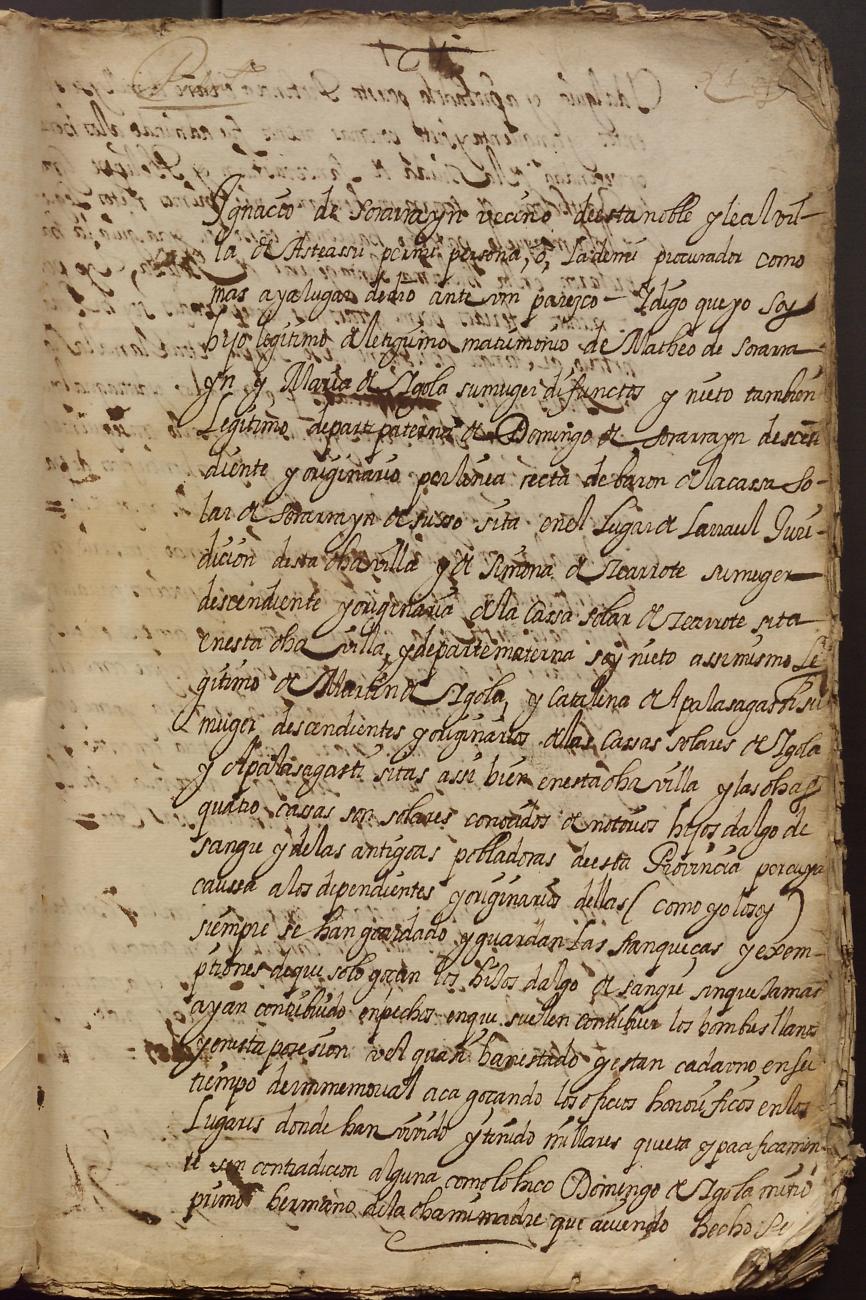 Ignacio de Sorarrayn vecino deesta noble y leal vil-
la de Asteassu por mi persona, o, la de mi procurador como
mas aya lugar de dro ante vm parezco - Y digo que yo soy
hijo legitimo de letigimo matrimonio de Matheo de Sorarra
yn y, Maria de Ygola su muger difunctos y nieto tambien
Legitimo de part paterna de Domingo de Sorarrayn descen
diente y originario por linea recta de baron de la cassa So-
lar de Sorarrayn de susso sita en el Lugar de Larraul Juri-
dicion desta dha villa y de Simona de Yearrote su muger
descendiente y originaria de la Cassa solar de Yearrote sita
en esta dha villa, y de parte materna soy nieto assimismo Le
gitimo de Martin de Ygola, y Catalina de Apalasagasti su
muger descendientes y originarios de las Cassas solares de Ygola
y Apalasagasti sitas assi bien en esta dha villa y las dhas
quatro cassas son solares conocidos de notorios hijos dalgo de
sangre y de las antigoas pobladoras de esta Provincia por cuya
caussa a los dependientes y originarios dellas ( como yo lo soy )
siempre se han goardado y guardan las franqueças y exem-
ptiones de que solo gozan los hijos dalgo de sangre sin que Jamas
ayan contribuido en pechos en que suelen contribuir los hombres llanos
y en esta posesion vel quasi han estado y estan cada vno en su
tiempo de immemorial aca gozando los oficios honorificos en los
Lugares donde han vivido y tenido millares quieta y pacificamen
te sin contradicion alguna como lo hiço Domingo de Ygola mi tio
primo hermano de la dha mi madre que aviendo hecho su